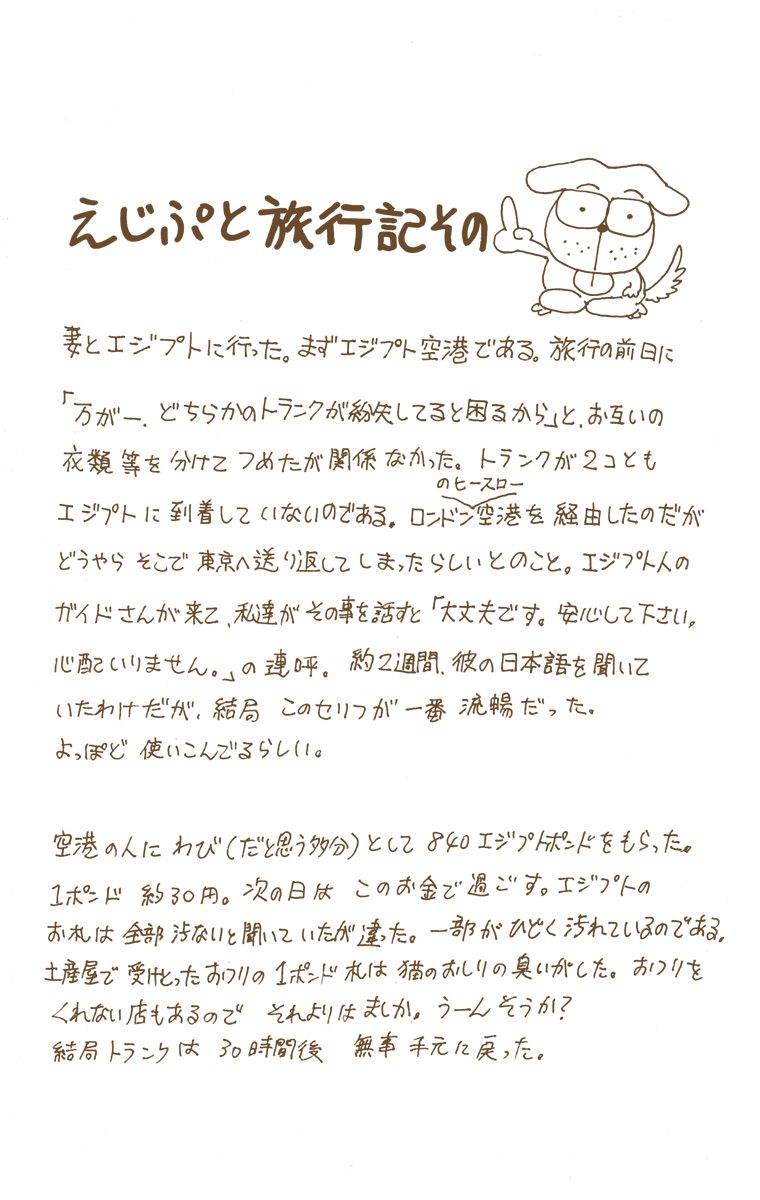 えじぷと旅行記その
妻とエジプトに行った。まずエジプト空港である。旅行の前日に
「万が一、どちらかのトランクが紛失してると困るから」と、お互いの
衣類等を分けてつめたが関係なかった。トランクが2コとも
のヒースロー
エジプトに到着していないのである。ロンドン空港を経由したのだが
どうやらそこで東京へ送り返してしまったらしいとのこと。エジプト人の
ガイドさんが来て、私達がその事を話すと「大丈夫です。安心して下さい。
心配いりません。」の連呼。約2週間、彼の日本語を聞いて
いたわけだが、結局このセリフが一番流暢だった。
よっぽど使いこんでるらしい。
空港の人にわび(だと思う多分)として840エジプトポンドをもらった。
1ポンド約30円。次の日はこのお金で過ごす。エジプトの
お札は全部汚ないと聞いていたが違った。一部がひどく汚れているのである。
土産屋で受けとったおつりの1ポンド札は猫のおしりの臭いがした。おつりを
くれない店もあるのでそれよりはましか。うーんそうか?
結局トランクは30時間後無事手元に戻った。